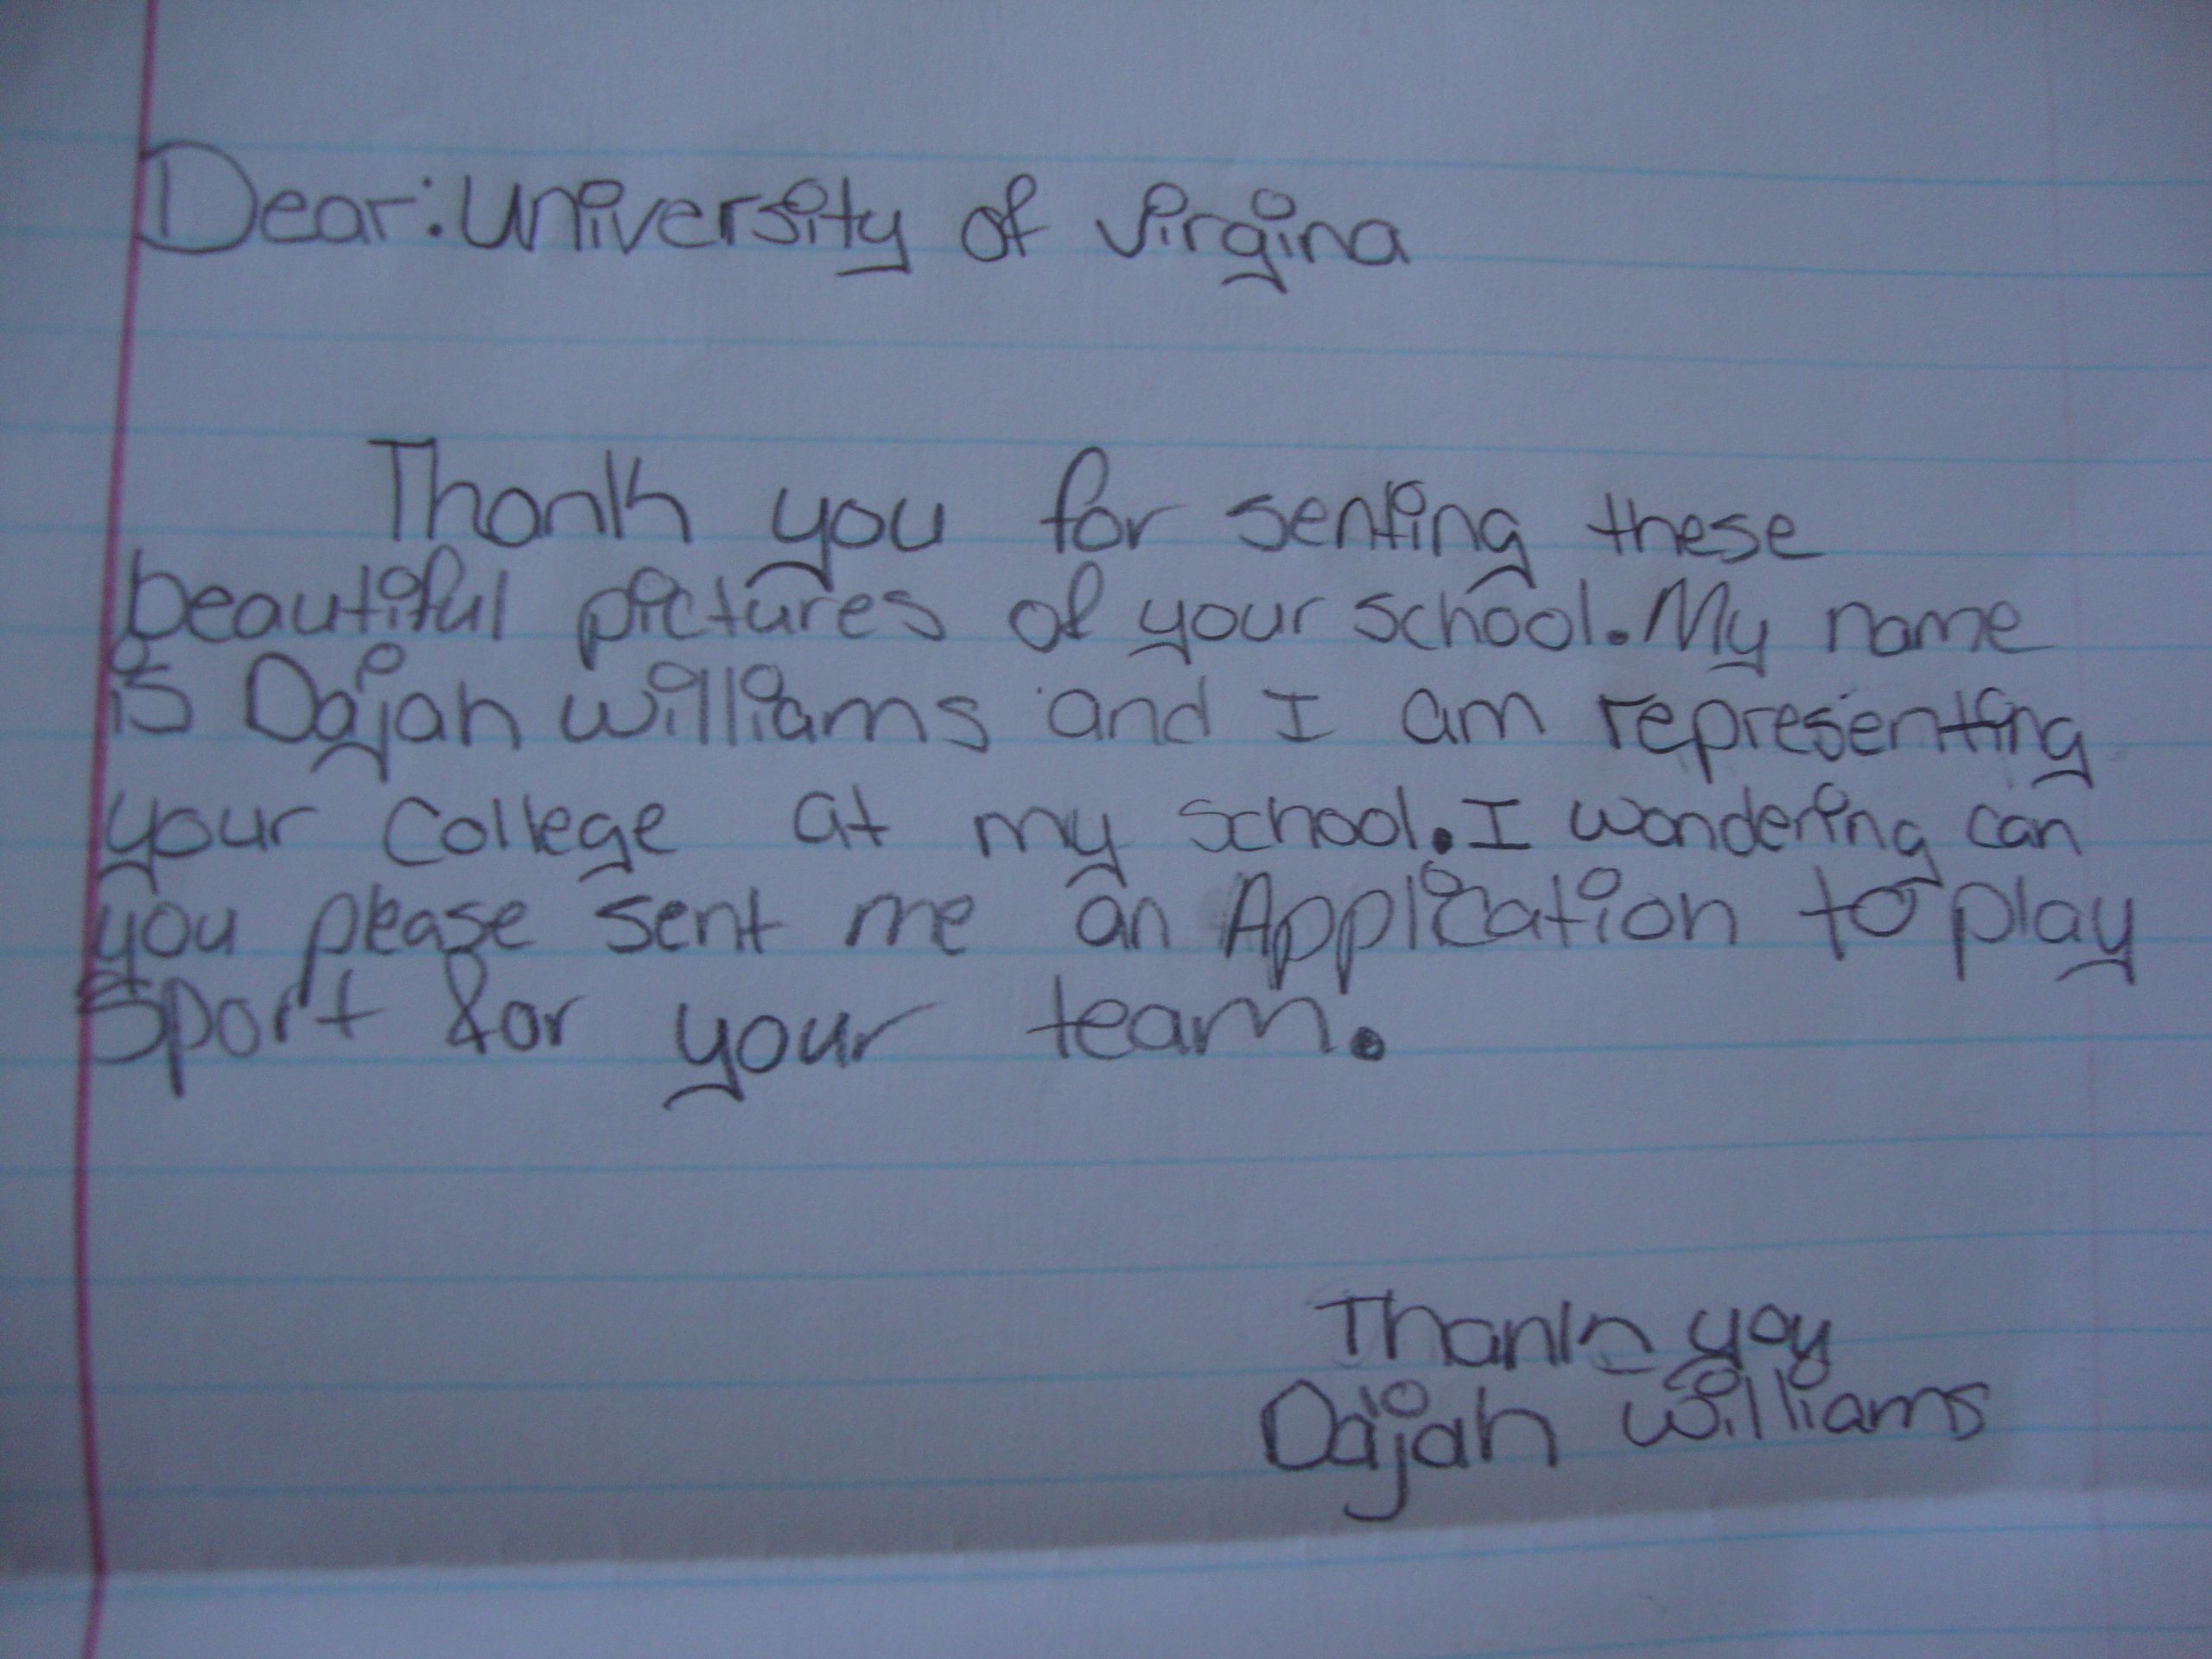 Dear: University of Virgina
Thank you for senting these
beautiful pictures of your school. My name
is Dajah Williams and I am representing
your College at my school. I wondering can
you please sent me an Application to play
Sport for your team.
Thank you
Dajah Williams